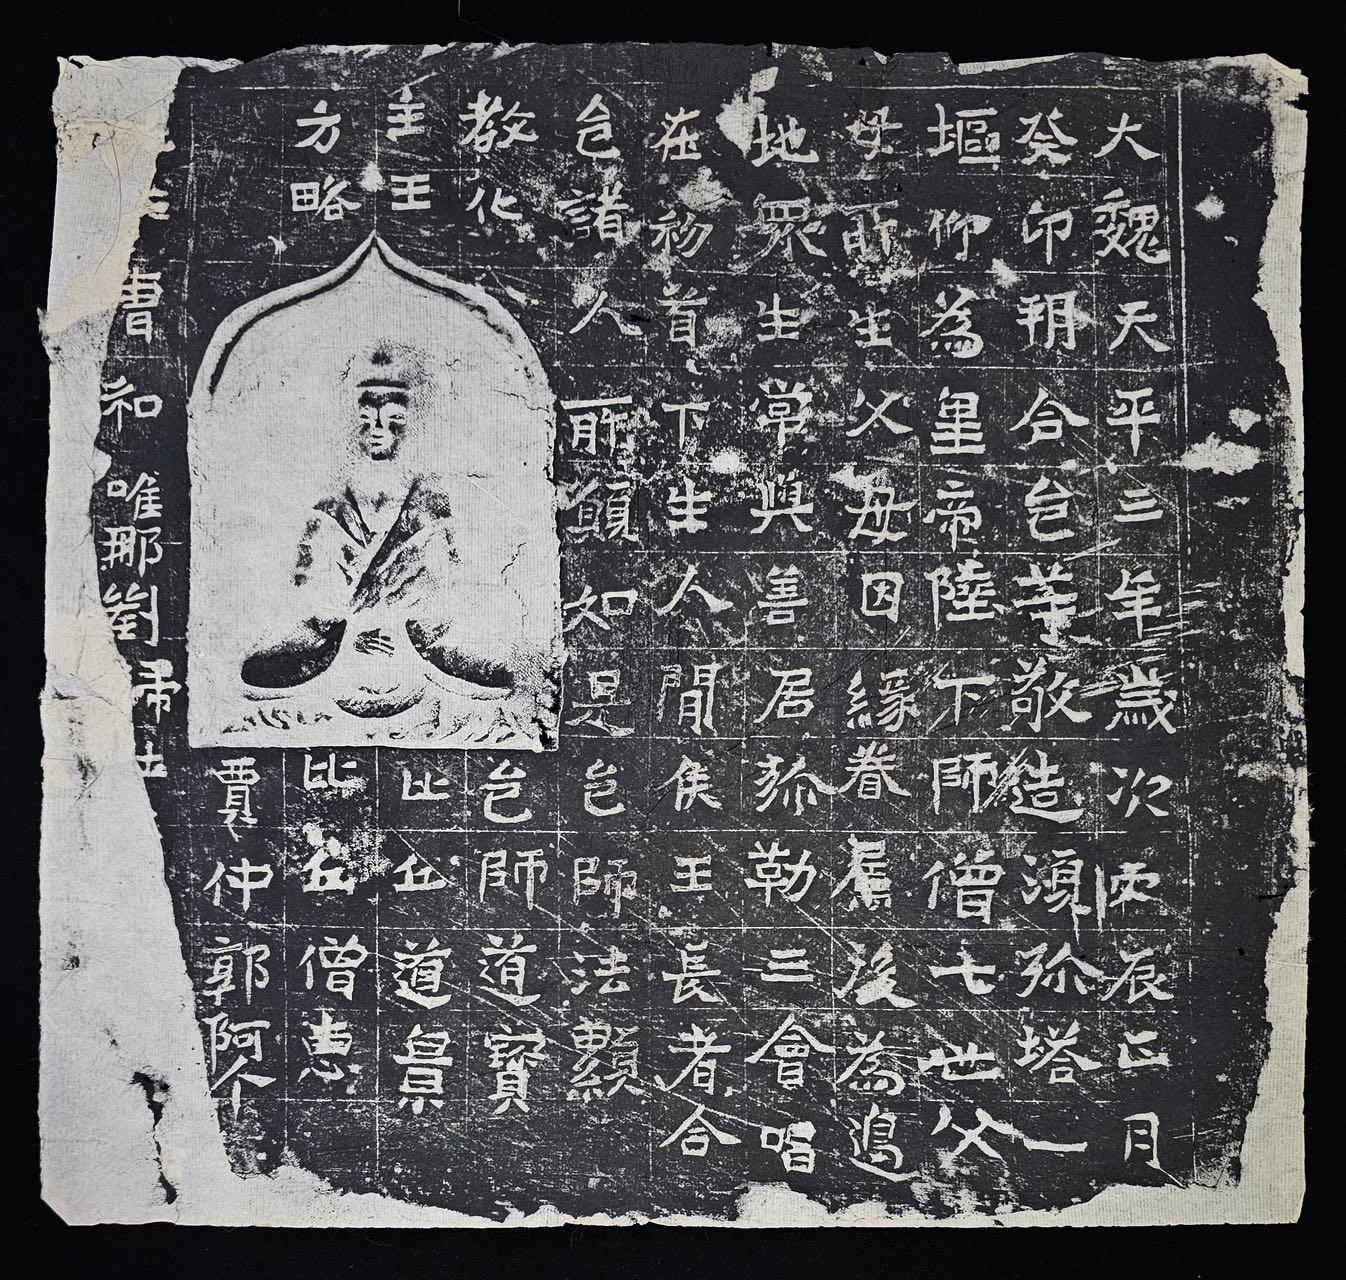 大魏天平三年歲次丙辰正月
癸卯朔合邑等敬造須弥塔一
塸仰為皇帝陛下師僧七世父
母所生父母因緣眷屬後為邊
地眾生常與善居弥勒三會唱
在初首下生人間侯王長者合
邑諸人所願如是邑師法顯
教化邑師道寶
主王比丘道景
方略比丘僧惠
賈仲郭阿
曹和唯那劉歸